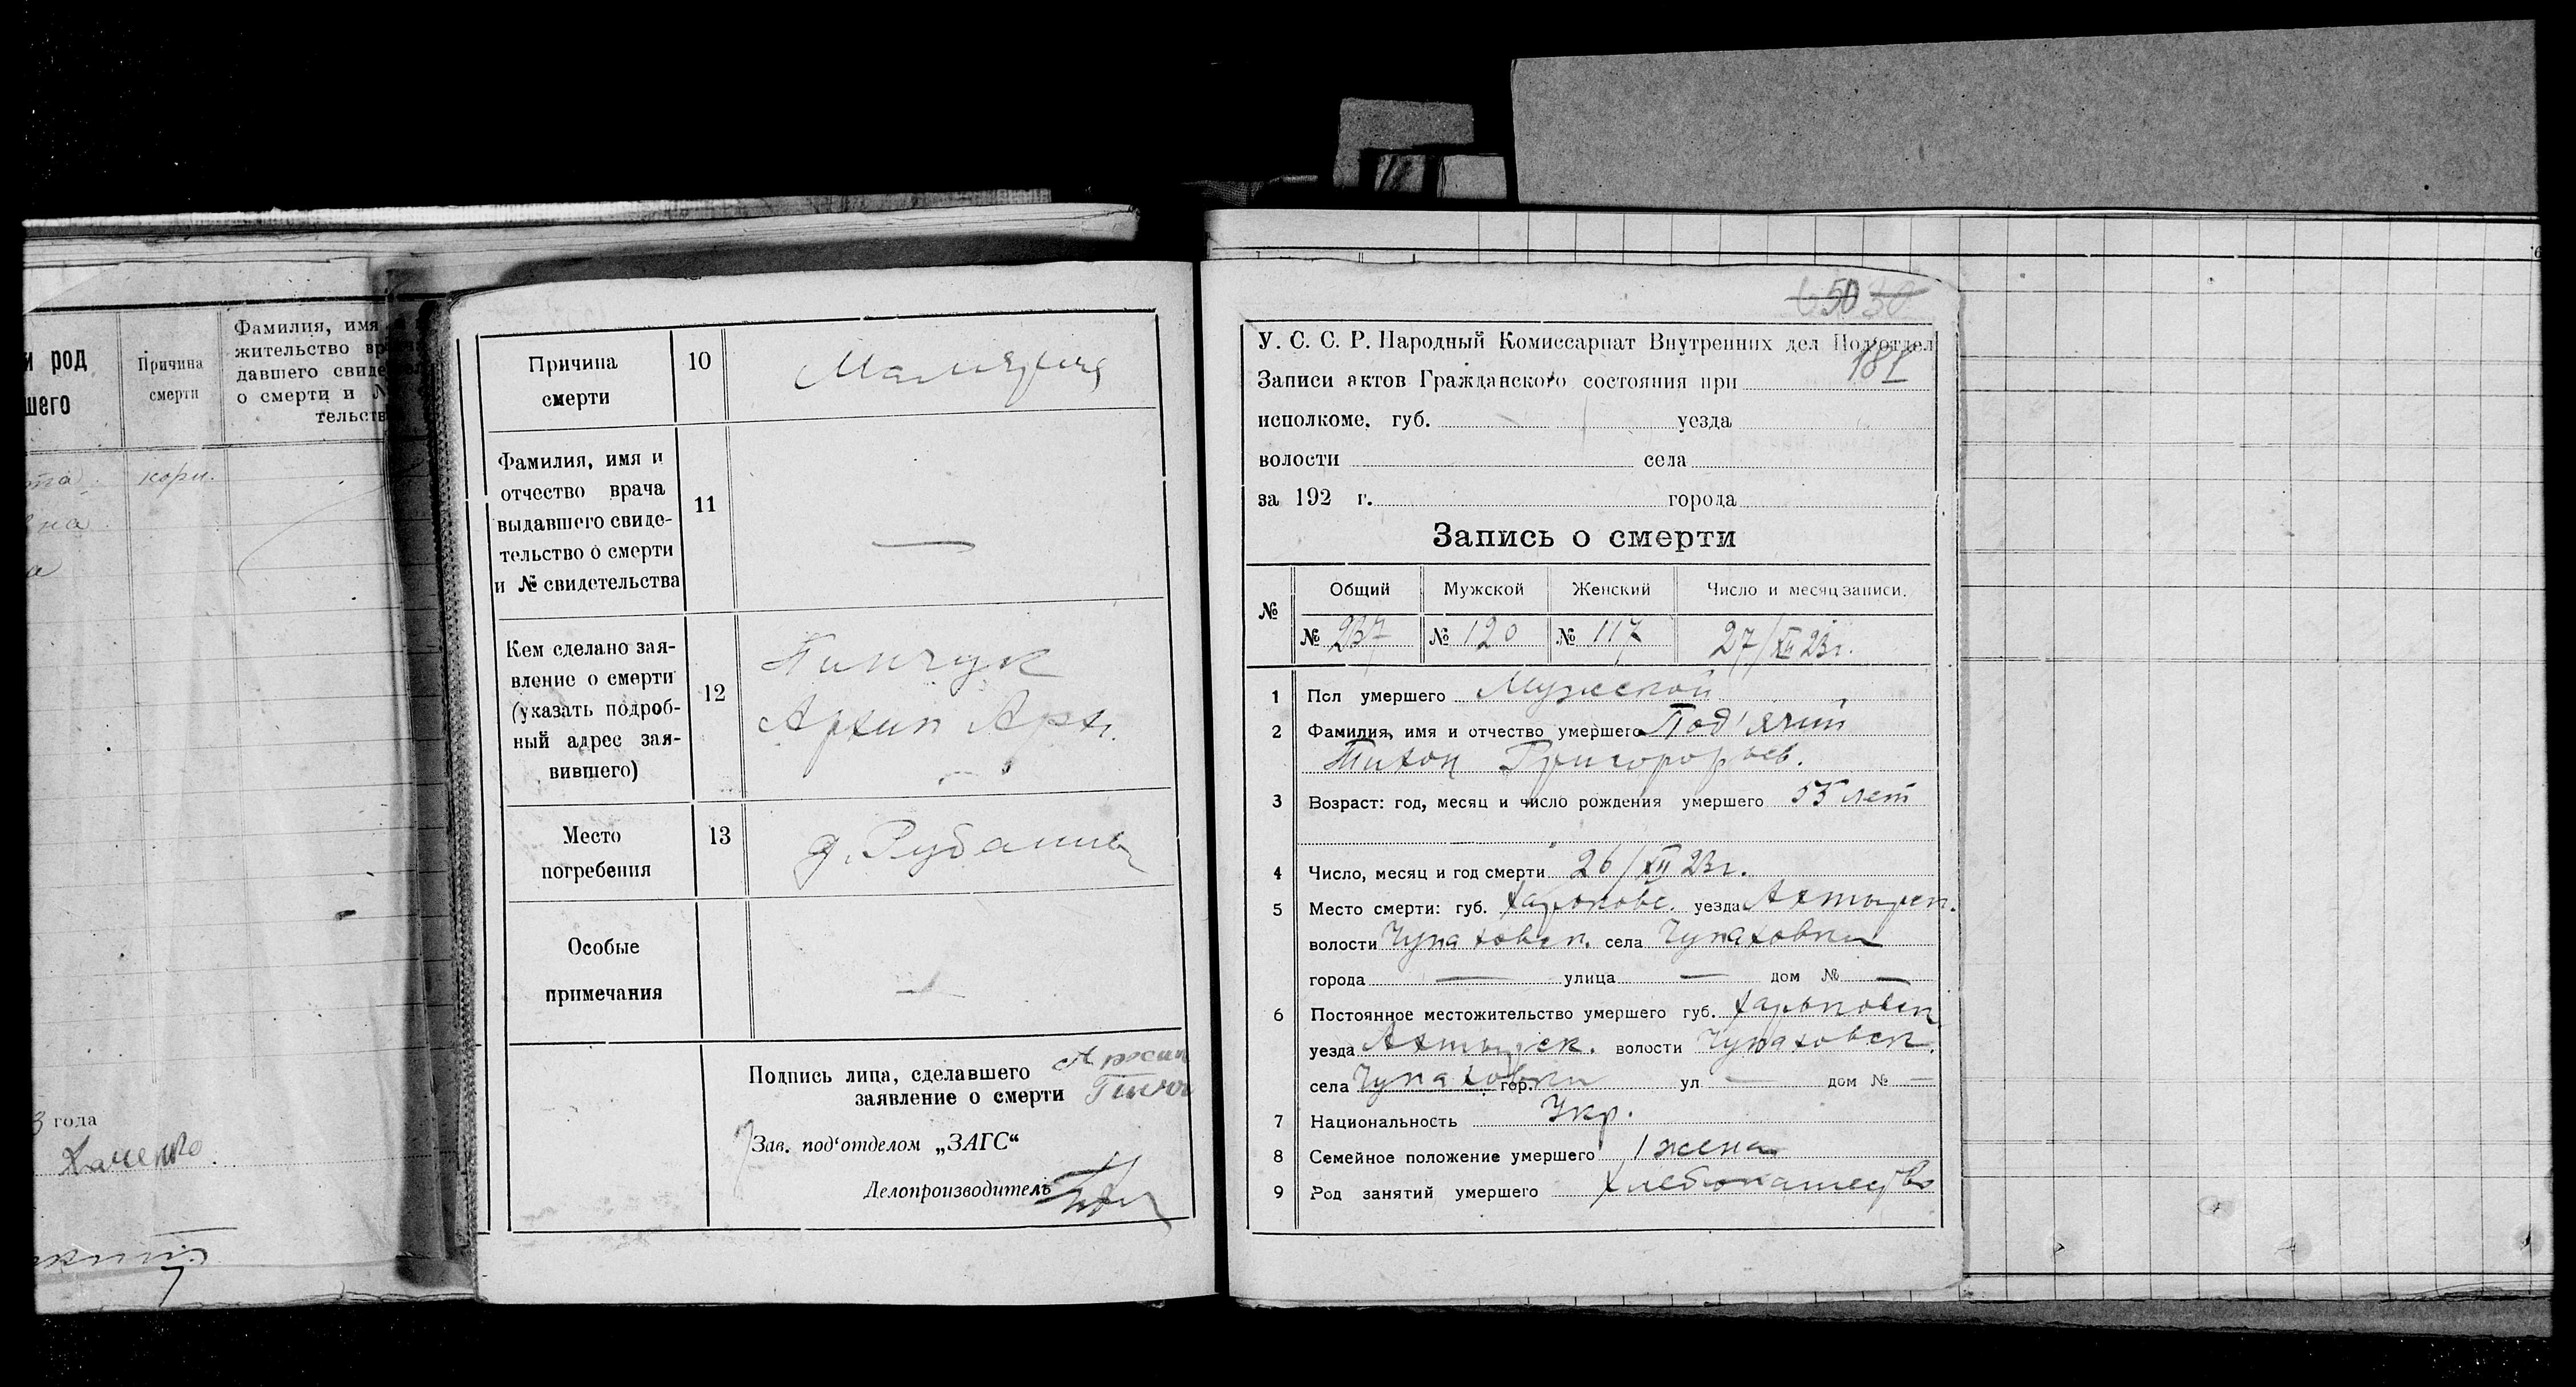 и род
шего
Причина
смерти
Фамилия, имя
жительство вр
давшего свиде
о смерти и №
тельств
та.
кори.
на
а
3 года
Хаченко
Причина
смерти
10
Малярия
Фамилия, имя и
отчество врача
выдавшего свиде-
тельство о смерти
и № свидетельства
11
—
Кем сделано зая-
вление о смерти
(указать подроб-
ный адрес зая-
вившего)
12
Пинчук
Архип Арх.
Место
погребения
13
д. Рубаны
Особые
примечания
—
Подпись лица, сделавшего
заявление о смерти
Архип
Зав. под‘отделом „ЗАГС“
Делопроизводитель
50 30
У. С. С. Р. Народный Комиссариат Внутренних дел Под‘отдел
181
Записи актов Гражданского состояния при
исполкоме. губ. уезда
волости села
за 192 г. города
Запись о смерти
№ Общий Мужской Женский Число и месяц записи.
№ 237 № 120 № 117 27/XII 23г.
1 Пол умершего Мужской
2 Фамилия, имя и отчество умершего Под'ячий
Тихон Григорьев.
3 Возраст: год, месяц и число рождения умершего 55 лет
4 Число, месяц и год смерти 26/XII 23г.
5 Место смерти: губ. Харьковс. уезда Ахтырск.
волости Чупаховск. села Чупаховки
города — улица — дом № —
6 Постоянное местожительство умершего губ. Харьковск
уезда Ахтырск. волости Чупаховск.
села Чупаховки гор. ул — дом № —
7 Национальность Укр.
8 Семейное положение умершего 1 жена
9 Род занятий умершего Хлебопашество